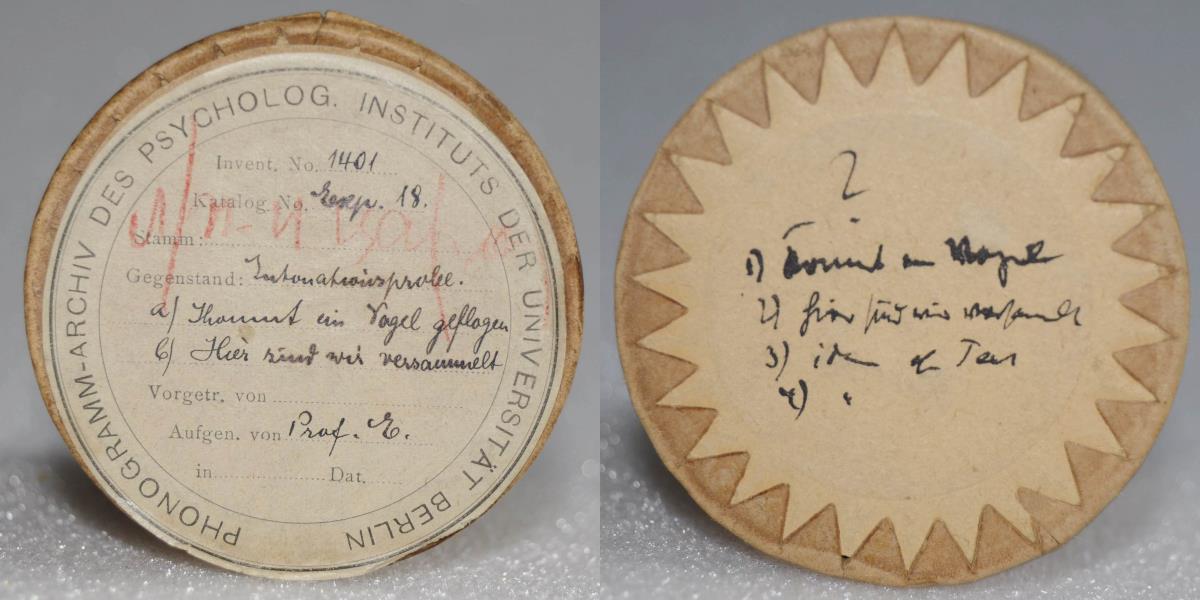 PHONOGRAMM-ARCHIV DES PSYCHOLOG. INSTITUTS DER UNIVERSITÄT BERLIN
Invent. No. 1401
Katalog. No. Exp. 18.
Stamm:
Gegenstand: Intonationsprobe.
a) Kommt ein Vogel geflogen
b) Hier sind wir versammelt
Vorgetr. von
Aufgen. von Prof. E.
in Dat.
2
1) Kommt ein Vogel
2) Hier sind wir versammelt
3)
4) "